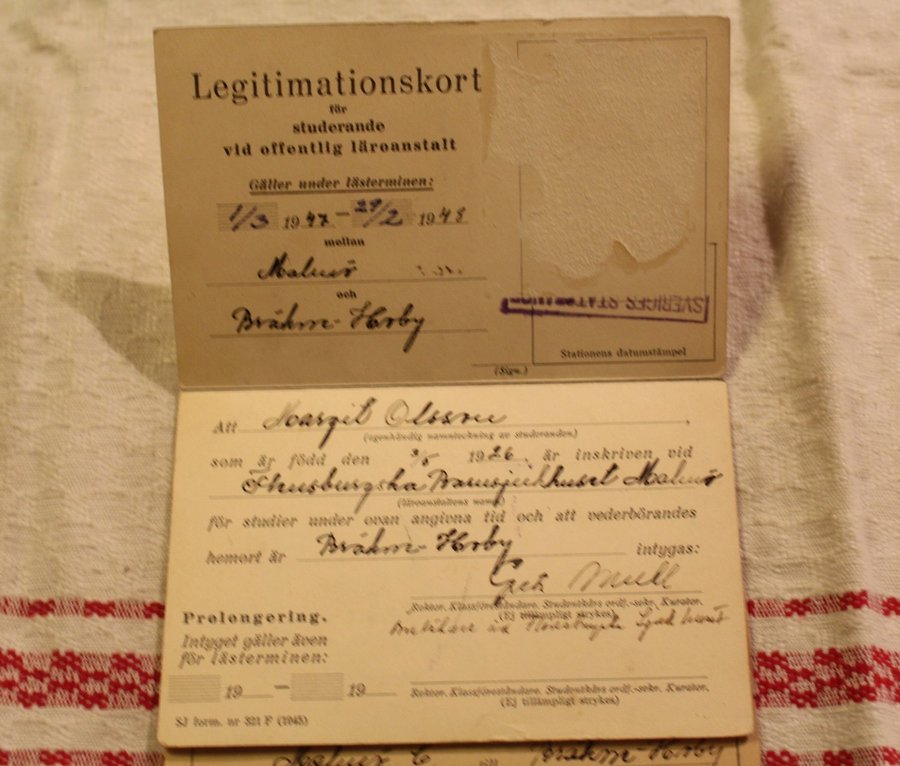 Legitimationskort
för
studerande
vid offentlig läroanstalt
Gäller under lästerminen:
1/3 1947 – 29/2 1948
mellan
Malmö
och
Bräkne-Hoby
SVERIGES
Stationens datumstämpel
(Sign.)
Att Margit Olsson,
(egenhändig namnteckning av studeranden)
som är född den 3/5 1926, är inskriven vid
Flensburgska Barnsjukhuset Malmö
(läroanstaltens namn)
för studier under ovan angivna tid och att vederbörandes
hemort är Bräkne-Hoby intygas:
Rektor. Klassföreståndare. Studentkårs ordf.-sekr. Kurator.
(Ej tillämpligt strykes)
Prolongering.
Intyget gäller även
för lästerminen:
19 – 19
Rektor. Klassföreståndare. Studentkårs ordf.-sekr. Kurator.
(Ej tillämpligt strykes)
SJ form. nr 321 F (1945)
Malmö C och Bräkne-Hoby